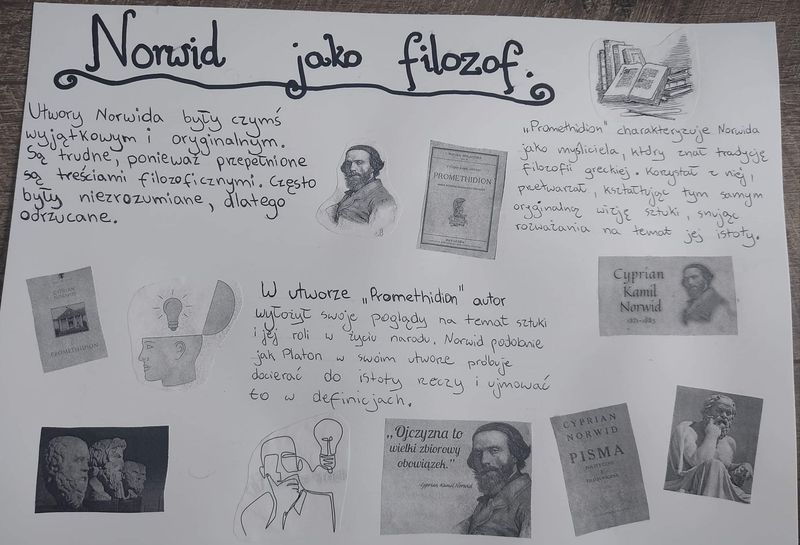 Norwid jako filozof.
Utwory Norwida były czymś
wyjątkowym i oryginalnym.
Są trudne, ponieważ przepełnione
są treściami filozoficznymi. Często
były niezrozumiane, dlatego
odrzucane.
PROMETHIDION
„Promethidion" charakteryzuje Norwida
jako myśliciela, który znał tradycję
filozofii greckiej. Korzystał z niej,
przetwarzał, kształtując tym samym
oryginalną wizję sztuki, snując
rozważania na temat jej istoty.
CYPRIAN
NORWID
PROMETHIDION
W utworze „Promethidion" autor
wyłożył swoje poglądy na temat sztuki
i jej roli w życiu narodu. Norwid podobnie
jak Platon w swoim utworze próbuje
docierać do istoty rzeczy i ujmować
to w definicjach.
Cyprian
Kamil
Norwid
1821-1883
„Ojczyzna to
wielki zbiorowy
obowiązek."
Cyprian Kamil Norwid
CYPRIAN
NORWID
PISMA
POLITYCZNE
I
FILOZOFICZNE